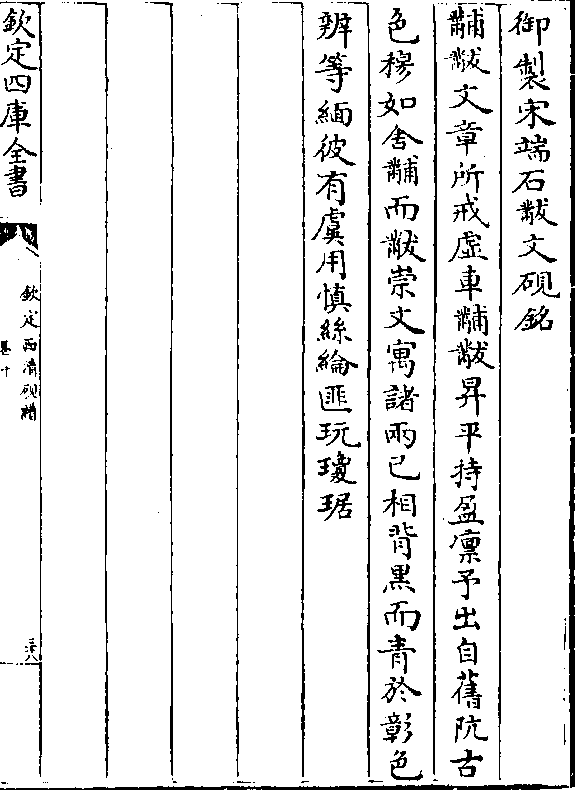 御製宋端石黻文硯銘
黼黻文章所戒虛車黼黻昇平持盈凛予出自舊阬古
色穆如舍黼而黻崇文寓諸兩已相背黒而青於彰色
辨等緬彼有虞用慎絲綸匪玩瓊琚
欽定四庫全書
欽定西清硯譜
卷十
三十八